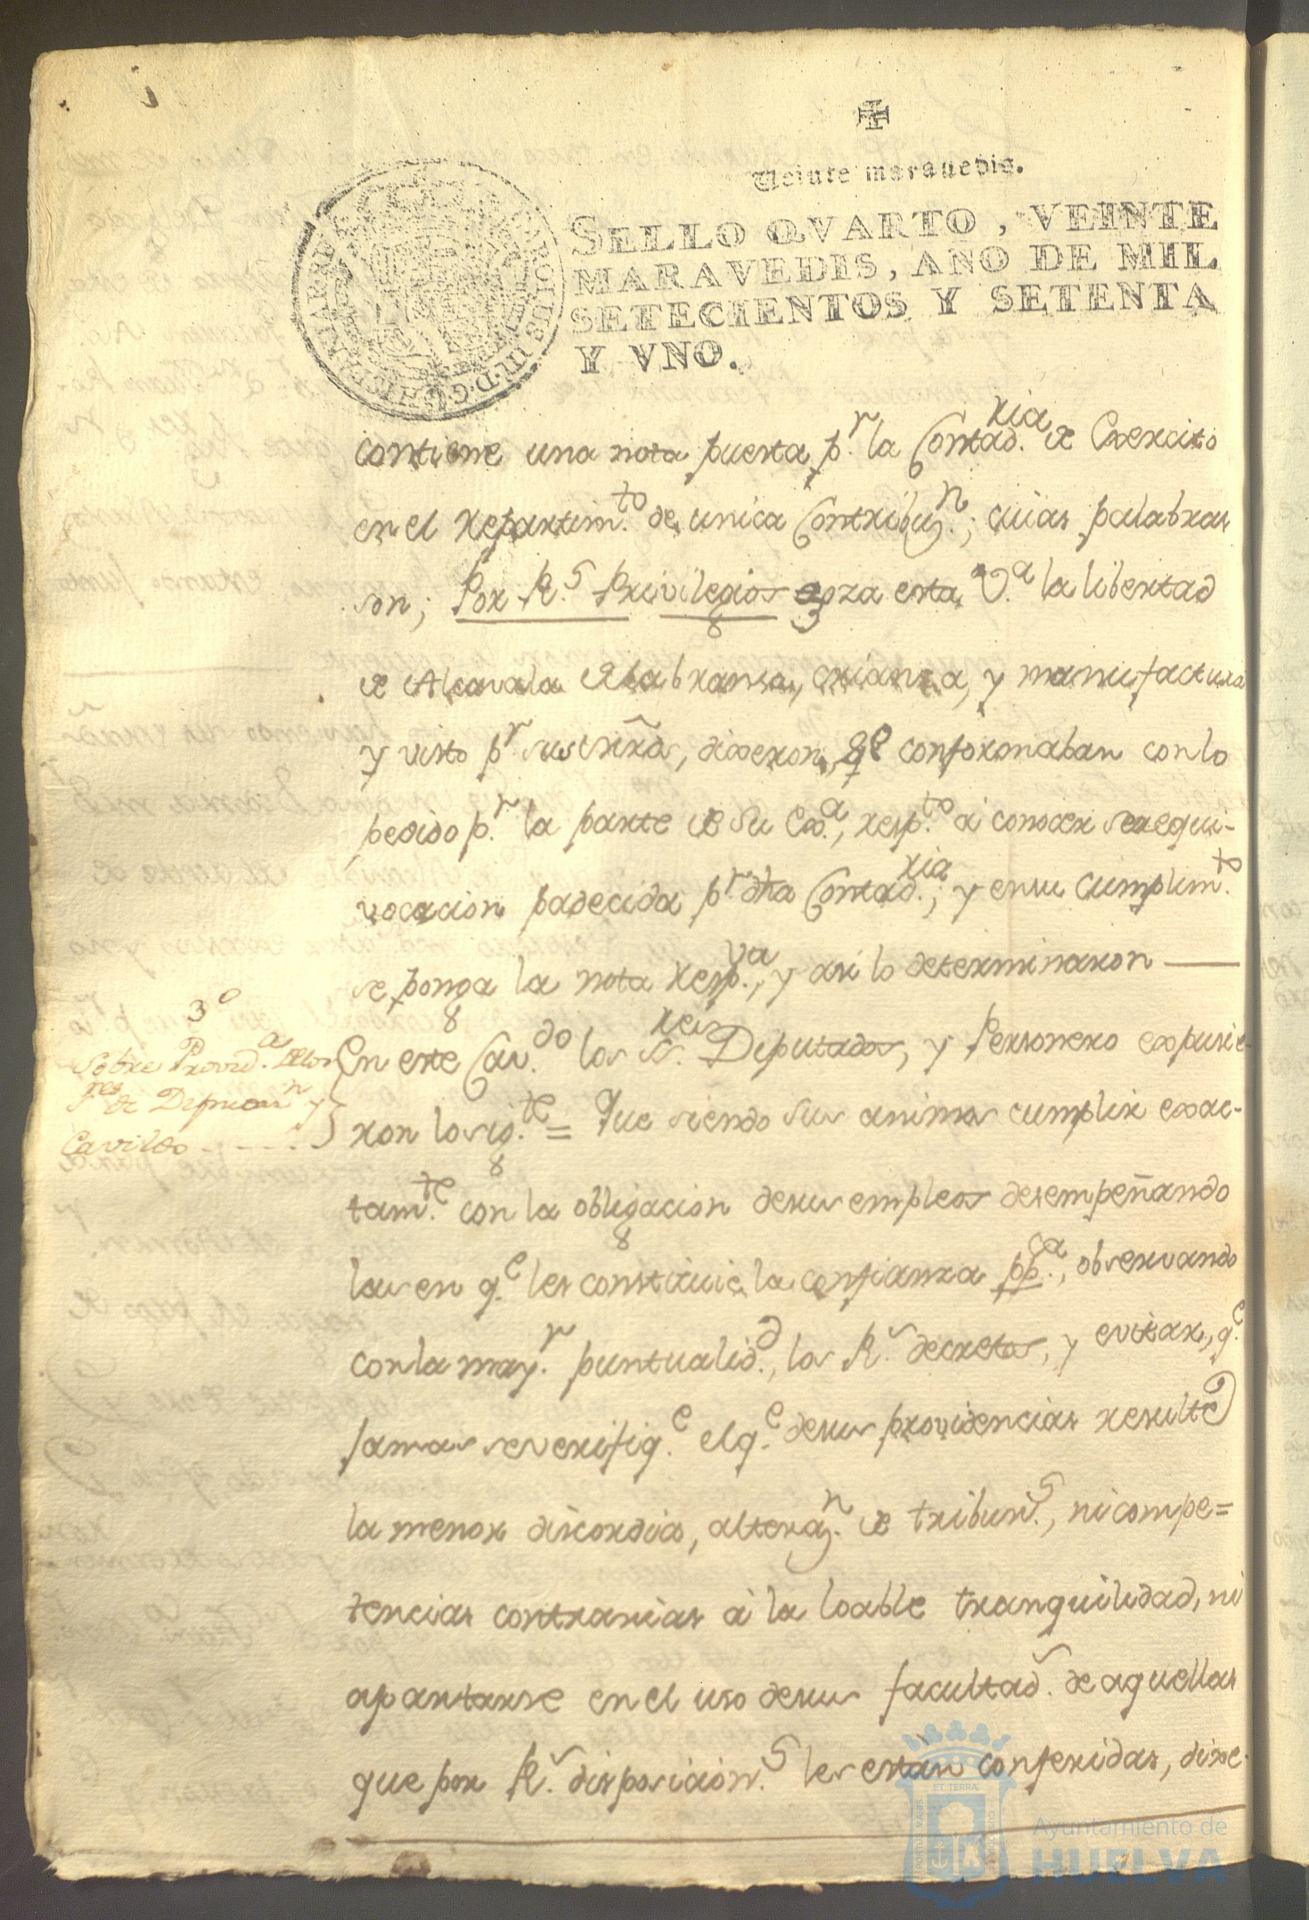 Veinte maravedis.
SELLO QVARTO, VEINTE
MARAVEDIS, AÑO DE MIL
SETECIENTOS Y SETENTA
Y VNO.
contiene una nota puesta p.r la Contad.ria de Exercito
en el Repartim.to de unica Contribuz.n; cuias palabras
son; Por R.s Privilegios goza esta V.a la libertad
de Alcavala de labranza, crianza, y manufactura
y visto p.r sus mrds, dixeron, q.e conformaban con lo
pedido p.r la parte de su Ex.a, resp.to a conocer ser equi-
vocacion padecida p.r dha Contad.ria; y en su cumplim.to
se ponga la nota resp.va, y asi lo determinaron
3.o
Sobre Provid.a
de Diputaz.n y
Cavildo
En este Cav.do los S.res Diputados, y Personero expusie-
ron lo sig.te = Que siendo sus animos cumplir exac-
tam.te con la obligacion de sus empleos desempeñando
las en q.e les constituie la confianza pp.ca, observando
con la may.r puntualid.d, los R.s decretos, y evitar, q.e
jamas se verifiq.e el q.e de sus providencias resulte
la menor discordia, alteraz.n de tribun.s, ni compe=
tencias contrarias á la loable tranquilidad, ni
apartarse en el uso de sus facultad.s de aquellas
que por R.s disposicion.s les están conferidas, dixe-
ET TERRA
Ayuntamiento de
HUELVA